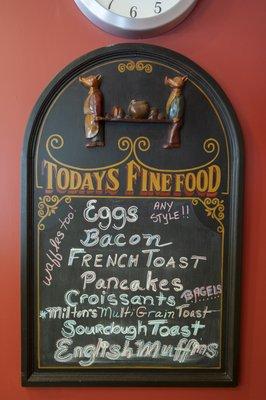 7 6 5
TODAYS FINE FOOD
waffles too!
EGGS ANY STYLE!!
Bacon
FRENCH TOAST
Pancakes
Croissants BAGELS...
*Milton's Multi Grain Toast
Sourdough Toast
English Muffins